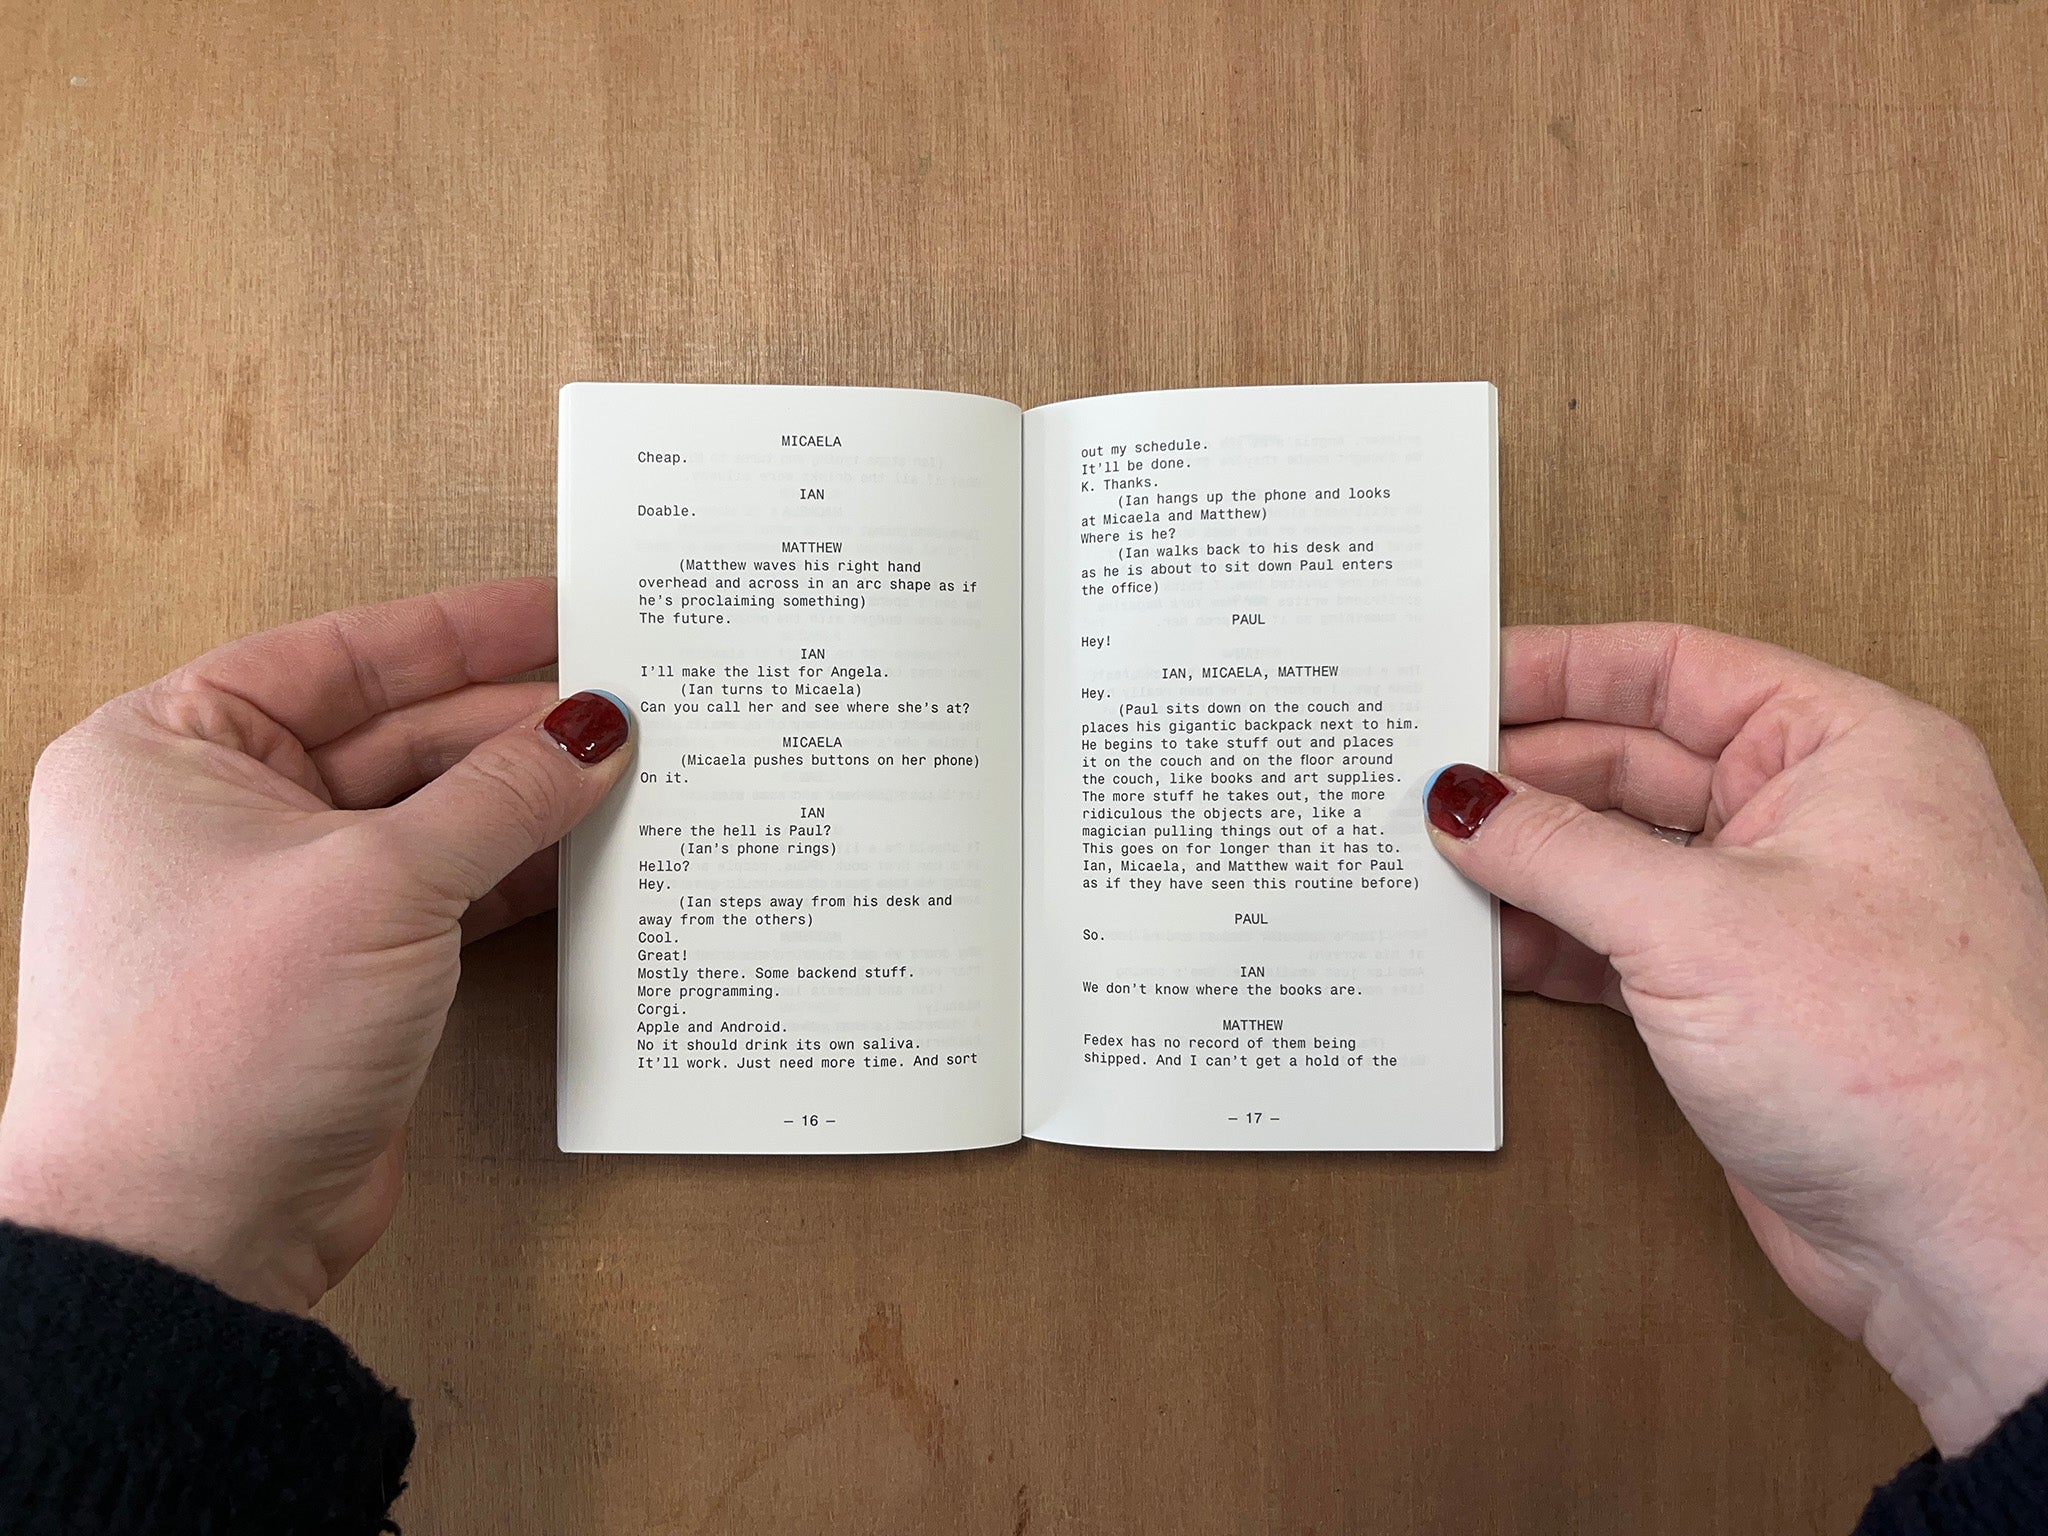 MICAELA
Cheap.
IAN
Doable.
MATTHEW
(Matthew waves his right hand
overhead and across in an arc shape as if
he's proclaiming something)
The future.
IAN
I'll make the list for Angela.
(Ian turns to Micaela)
Can you call her and see where she's at?
MICAELA
(Micaela pushes buttons on her phone)
On it.
IAN
Where the hell is Paul?
(Ian's phone rings)
Hello?
Hey.
(Ian steps away from his desk and
away from the others)
Cool.
Great!
Mostly there. Some backend stuff.
More programming.
Corgi.
Apple and Android.
No it should drink its own saliva.
It'll work. Just need more time. And sort
– 16 –
out my schedule.
It'll be done.
K. Thanks.
(Ian hangs up the phone and looks
at Micaela and Matthew)
Where is he?
(Ian walks back to his desk and
as he is about to sit down Paul enters
the office)
PAUL
Hey!
IAN, MICAELA, MATTHEW
Hey.
(Paul sits down on the couch and
places his gigantic backpack next to him.
He begins to take stuff out and places
it on the couch and on the floor around
the couch, like books and art supplies.
The more stuff he takes out, the more
ridiculous the objects are, like a
magician pulling things out of a hat.
This goes on for longer than it has to.
Ian, Micaela, and Matthew wait for Paul
as if they have seen this routine before)
PAUL
So.
IAN
We don't know where the books are.
MATTHEW
Fedex has no record of them being
shipped. And I can't get a hold of the
– 17 –